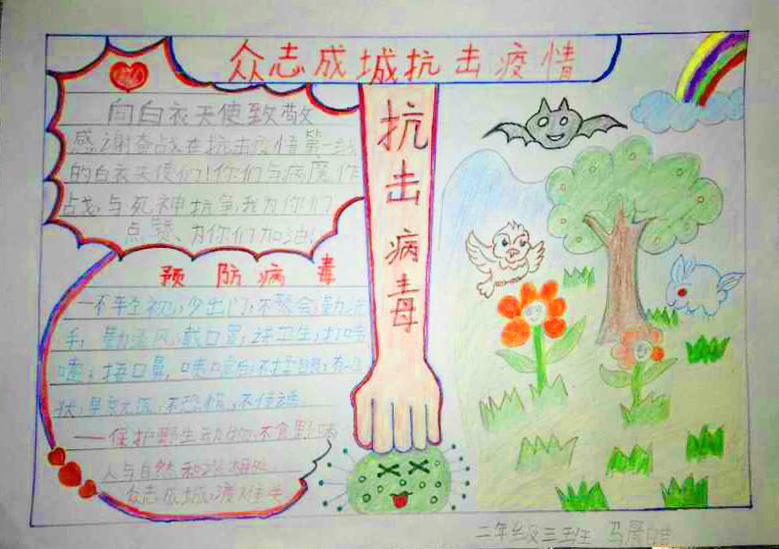 众志成城抗击疫情
向白衣天使致敬
感谢奋战在抗击疫情第一线
的白衣天使们!你们与病魔作
战,与死神抗争,我为你们
点赞,为你们加油!
抗击病毒
预防病毒
一不轻视,少出门,不聚会,勤洗
手,勤通风,戴口罩,讲卫生,打喷
嚏,捂口鼻,喷嚏后,不揉眼,有
状,早就医,不恐慌,不传谣
一保护野生动物,不食野味
人与自然和谐相处
众志成城,渡难关
二年级三班 马晨